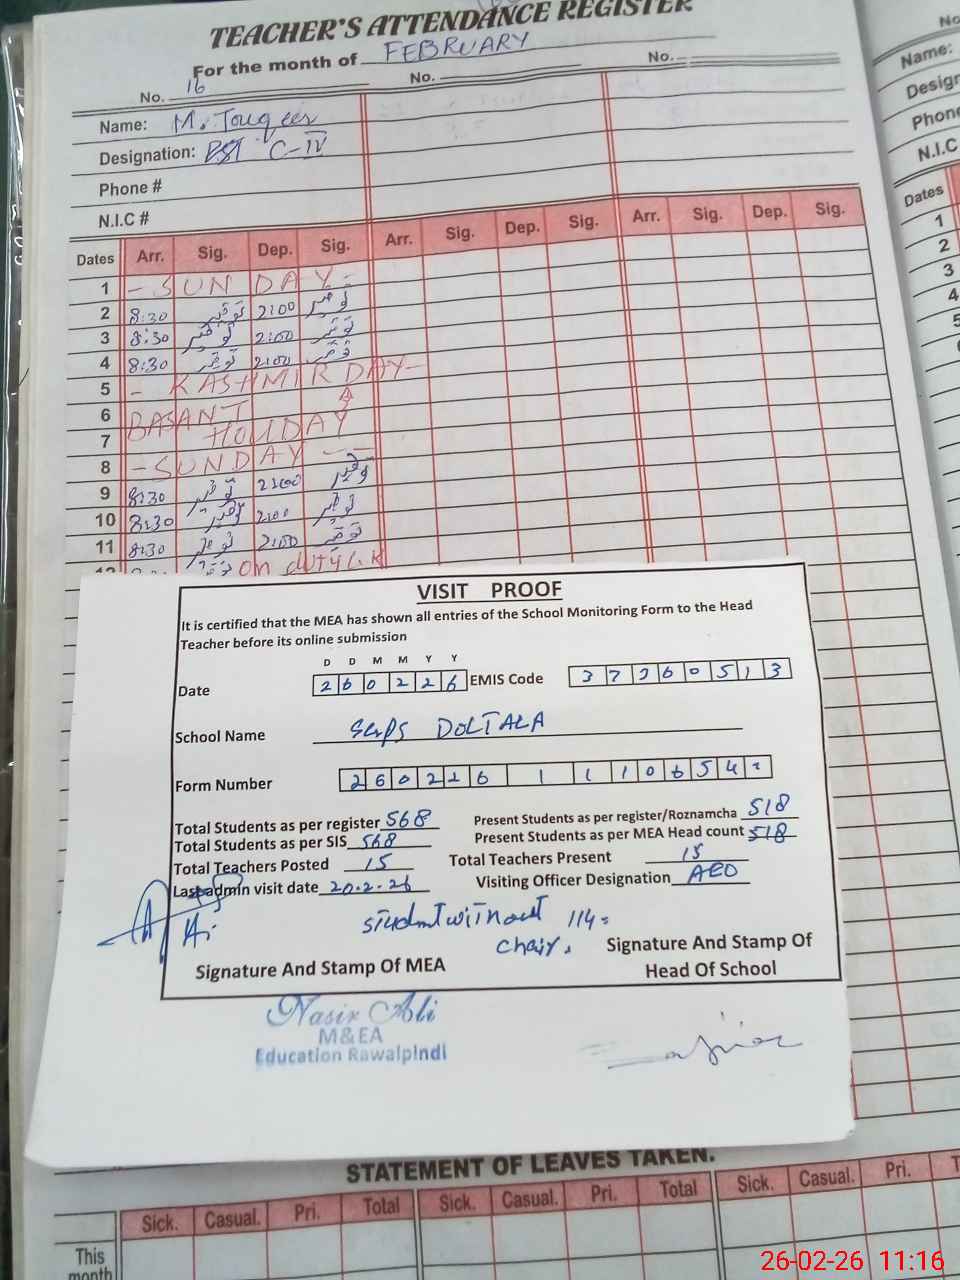 TEACHER'S ATTENDANCE REGISTER
For the month of FEBRUARY
No. 16 No. No. No.
Name: M. Touqeer Name:
Designation: PST C-IV
Phone # Phone
N.I.C # N.I.C
Dates Arr. Sig. Dep. Sig. Arr. Sig. Dep. Sig. Arr. Sig. Dep. Sig. Dates
1 - SUNDAY - 1
2 8:30 توقیر 2:00 توقیر 2
3 8:30 توقیر 2:00 توقیر 3
4 8:30 توقیر 2:00 توقیر 4
5 - KASHMIR DAY -
6 BASANT
7 HOLIDAY
8 - SUNDAY -
9 8:30 توقیر 2:00 توقیر
10 8:30 توقیر 2:00 توقیر
11 8:30 توقیر 2:00 توقیر
on duty
VISIT PROOF
It is certified that the MEA has shown all entries of the School Monitoring Form to the Head
Teacher before its online submission
D D M M Y Y
Date 260226 EMIS Code 37360513
School Name DOLTALA
Form Number
Total Students as per register 568 Present Students as per register/Roznamcha 518
Total Students as per SIS 568 Present Students as per MEA Head count 518
Total Teachers Posted 15 Total Teachers Present 15
Last admin visit date 20.2.26 Visiting Officer Designation AEO
student without 114=
chair.
Signature And Stamp Of MEA Signature And Stamp Of
Head Of School
Nasir Ali
M&EA
Education Rawalpindi
STATEMENT OF LEAVES TAKEN.
Sick. Casual. Pri. Total Sick. Casual. Pri. Total Sick. Casual. Pri.
This
month
26-02-26 11:16